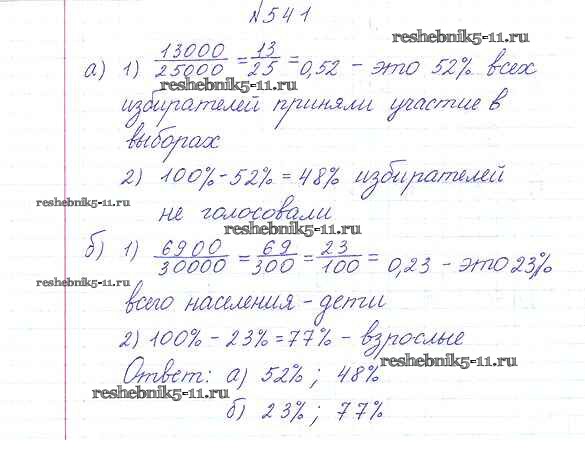 №541
reshebnik5-11.ru
а) 1) 13000/25000 = 13/25 = 0,52 - это 52% всех
reshebnik5-11.ru
избирателей приняли участие в
выборах
2) 100% - 52% = 48% избирателей
reshebnik5-11.ru
не голосовали
reshebnik5-11.ru
б) 1) 6900/30000 = 69/300 = 23/100 = 0,23 - это 23%
reshebnik5-11.ru
всего населения - дети
2) 100% - 23% = 77% - взрослые
reshebnik5-11.ru
Ответ: а) 52%; 48%
reshebnik5-11.ru
б) 23%; 77%